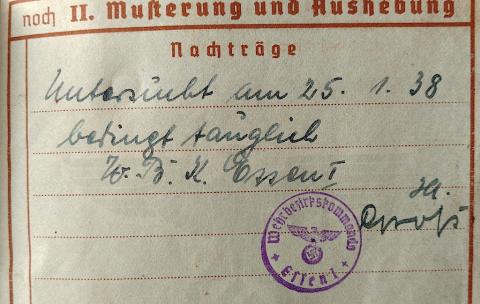 noch II. Musterung und Aushebung
Nachträge
Untersucht am 25. 1. 38
bedingt tauglich
W. B. K. Essen I
Wehrbezirkskommando
Essen I